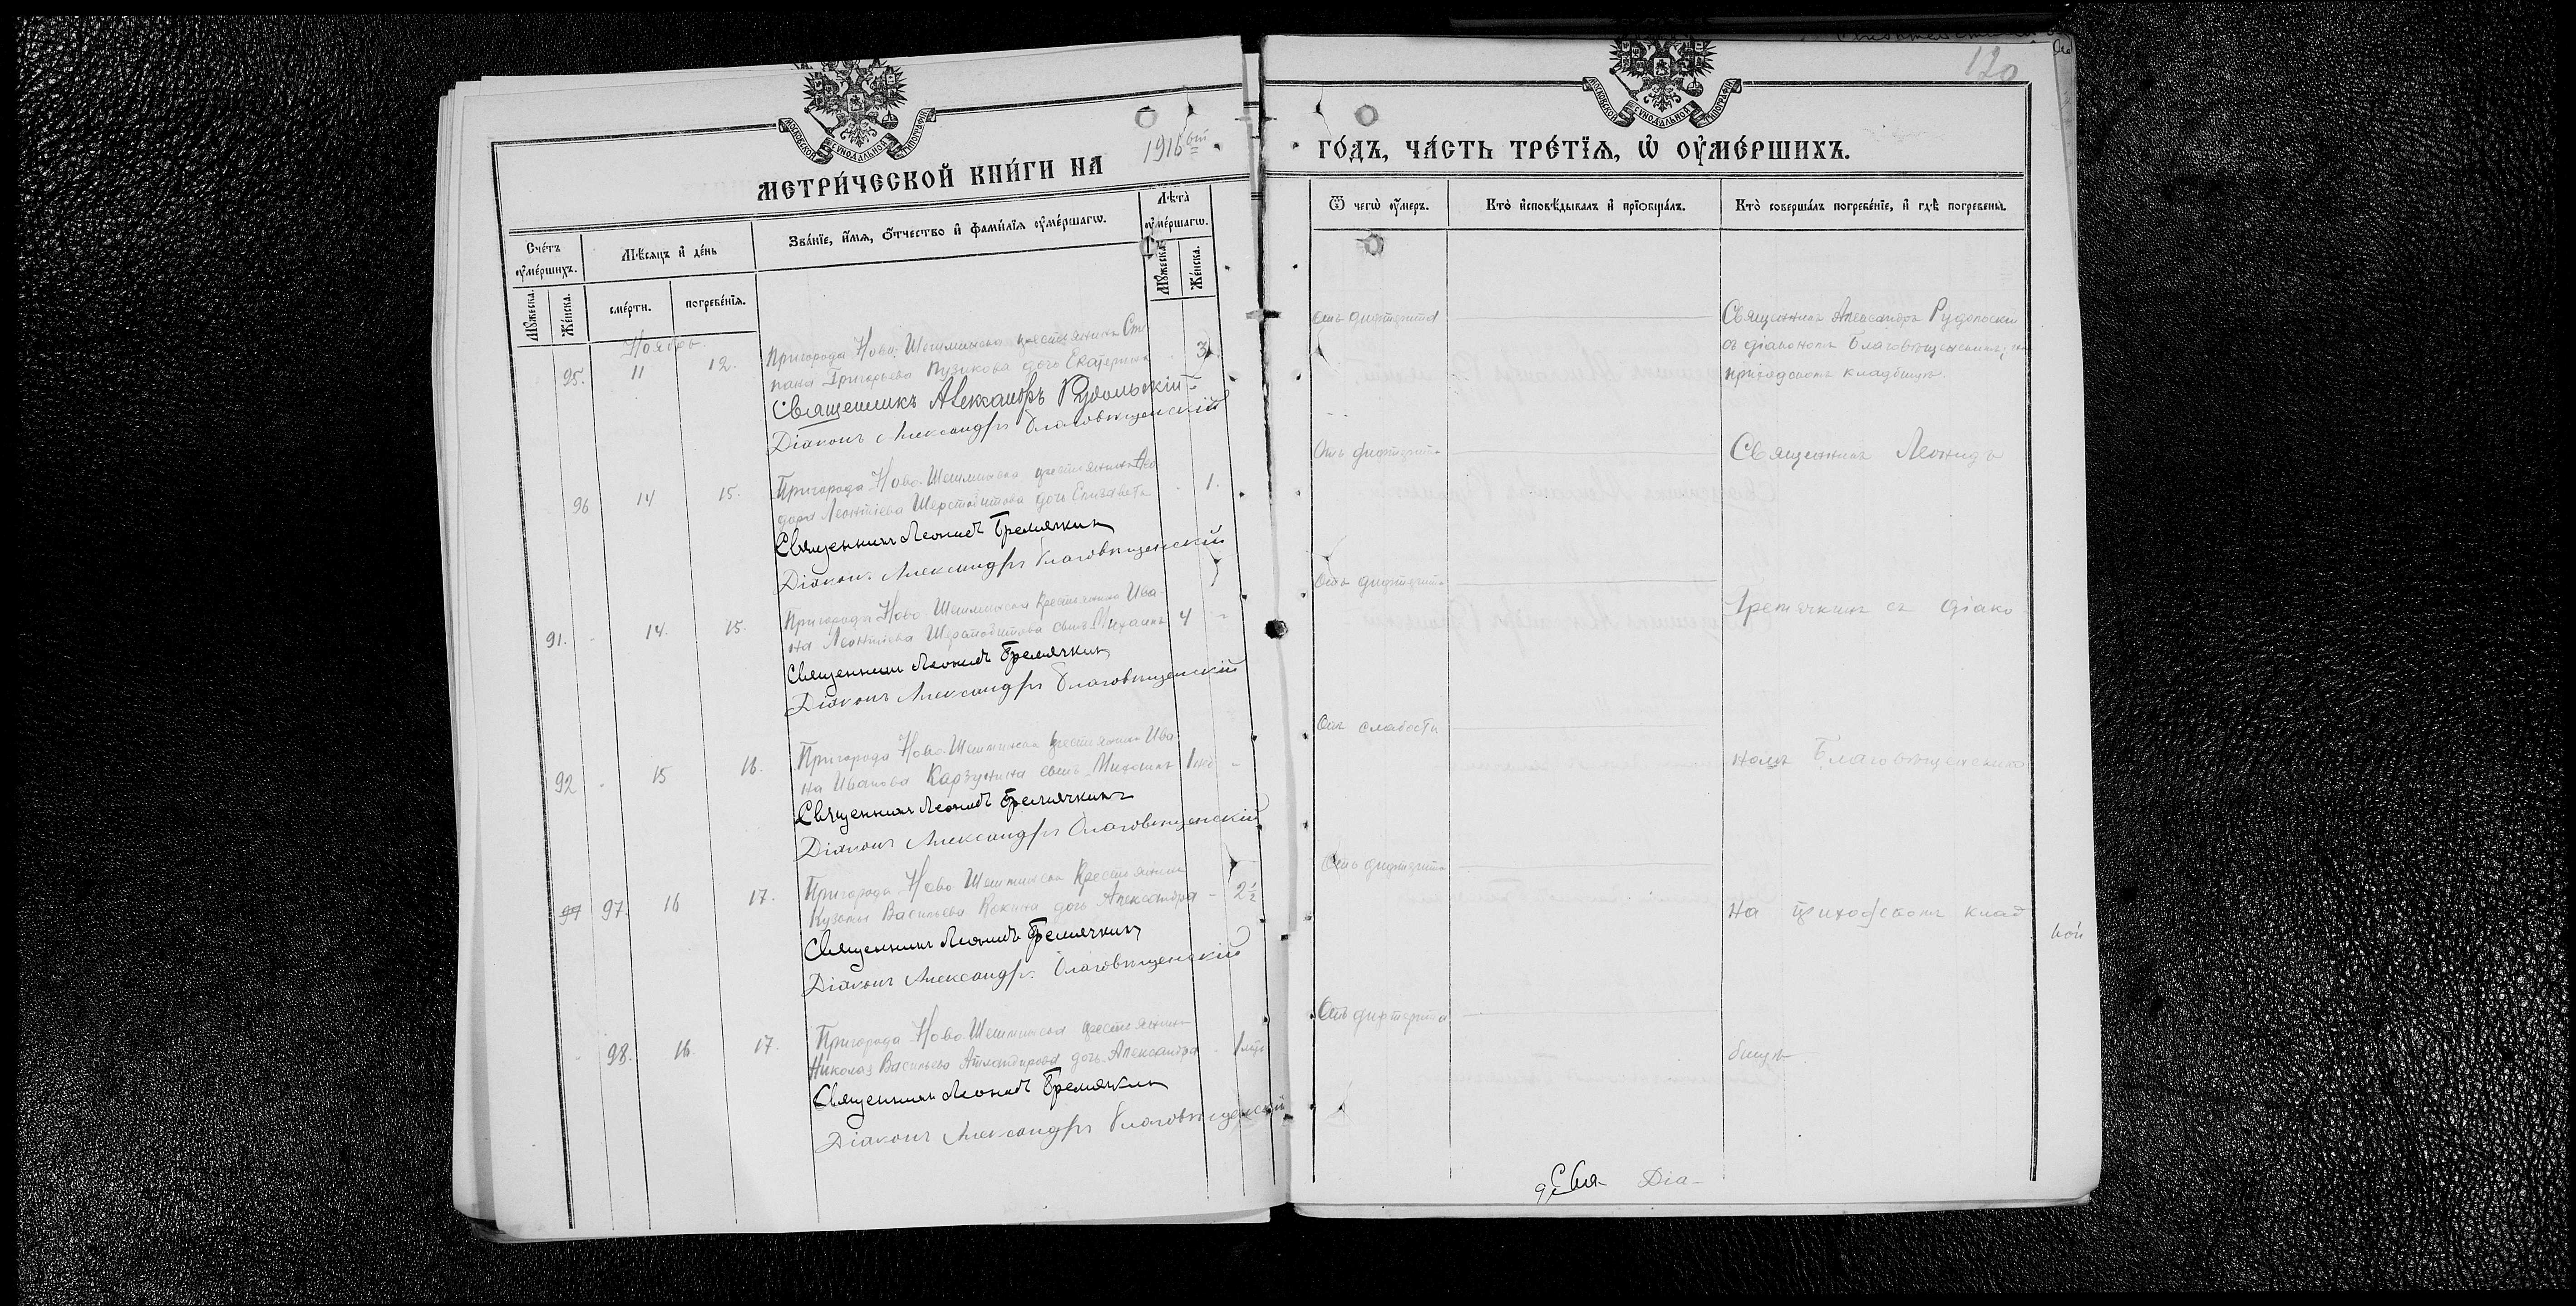 МОСКОВСКОЙ СѴНОДАЛЬНОЙ ТИПОГРАФІИ
МЕТРИ́ЧЕСКОЙ КНИ́ГИ НА 1916ый
Сче́тъ ᲂу҆ме́ршихъ.
Мѣ́сяцъ и҆ де́нь
Зва́нїе, и҆́мя, ѻ҆́тчество и҆ фами́лїя ᲂу҆ме́ршагѡ.
Лѣ́та ᲂу҆ме́ршагѡ.
Мꙋ́жеска.
Же́нска.
сме́рти.
погребе́нїя.
Мꙋ́жеска.
Же́нска.
Ноябрь.
95. 11 12. Пригорода Ново-Шешминска крестьянина Сте 3
пана Григорьева Пузикова дочь Екатерина
Священникъ Александръ Рудольскій
Діаконъ Александръ Благовѣщенскій
96 14 15. Пригорода Ново-Шешминска крестьянина 1.
Леонтіева Шерстобитова дочь Елизавета
Священникъ Леонидъ Гремячкинъ
Діаконъ Александръ Благовѣщенскій
91. - 14. 15. Пригорода Ново-Шешминска крестьянина Ива-
на Леонтіева Шерстобитова сынъ Михаилъ 4 -
Священникъ Леонидъ Гремячкинъ
Діаконъ Александръ Благовѣщенскій
92 - 15 16. Пригорода Ново-Шешминска крестьянина Ива
на Иванова Карзунина сынъ Михаилъ 1
Священникъ Леонидъ Гремячкинъ
Діаконъ Александръ Благовѣщенскій
97 97. 16 17. Пригорода Ново-Шешминска крестьянина
Кузьмы Васильева Кокина дочь Александра - 2 1/2
Священникъ Леонидъ Гремячкинъ
Діаконъ Александръ Благовѣщенскій
- 98. 16 17. Пригорода Ново-Шешминска крестьянина
Николая Васильева дочь Александра - 1
Священникъ Леонидъ Гремячкинъ
Діаконъ Александръ Благовѣщенскій
120
МОСКОВСКОЙ СѴНОДАЛЬНОЙ ТИПОГРАФІИ
ГО́ДЪ, ЧА́СТЬ ТРЕ́ТЇЯ, Ѡ҆ ОУ҆МЕ́РШИХЪ.
Ѿ чегѡ̀ ᲂу҆́меръ.
Кто̀ и҆сповѣ́дывалъ и҆ прїѡбща́лъ.
Кто̀ соверша́лъ погребе́нїе, и҆ гдѣ̀ погребены̀.
Отъ дифтерита
Священникъ Александръ Рудольскій
съ діакономъ Благовѣщенскимъ на
приходскомъ кладбищѣ.
Отъ дифтерита
Священникъ Леонидъ
Отъ дифтерита
Гремячкинъ съ діако
Отъ слабости
номъ Благовѣщенскимъ
Отъ дифтерита
на приходскомъ клад
Отъ дифтерита
бищѣ.
Свя- Діа-